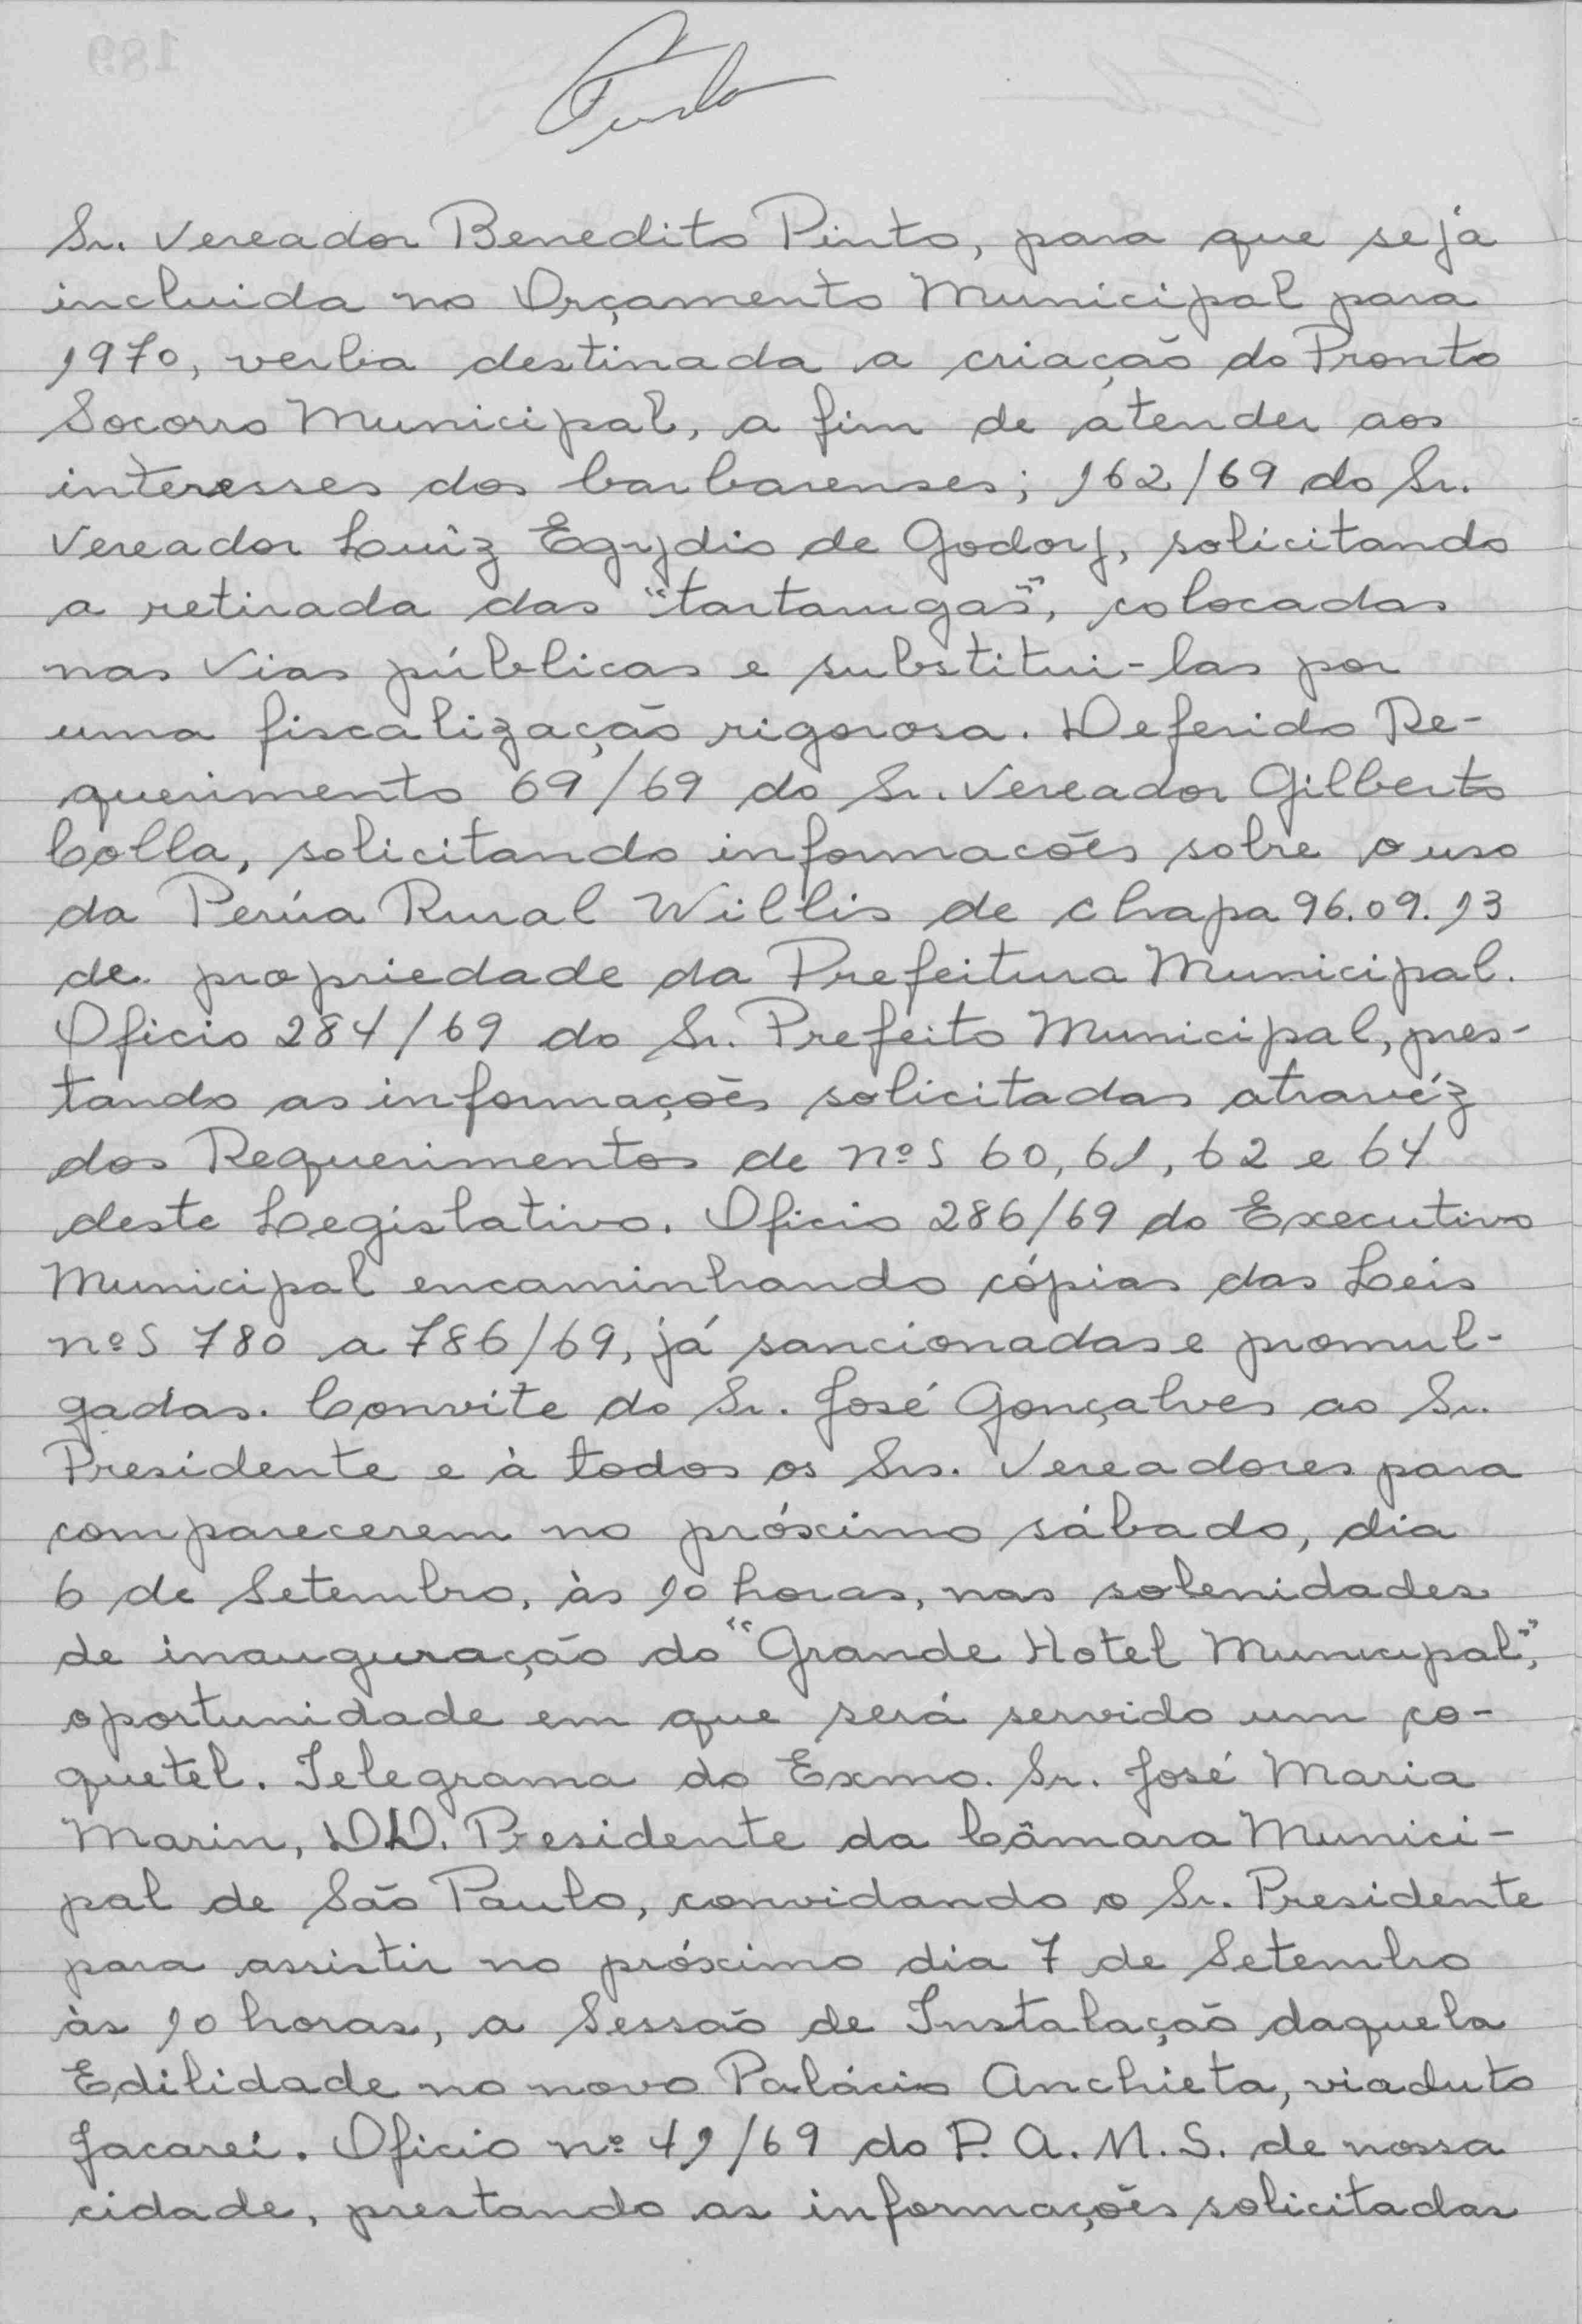 Sr. Vereador Benedito Pinto, para que seja
incluida no Orçamento Municipal para
1970, verba destinada a criação do Pronto
Socorro Municipal, a fim de atender aos
interesses dos barbarenses; 162/69 do Sr.
Vereador Luiz Egydio de Godoy, solicitando
a retirada das "tartarugas", colocadas
nas Vias públicas e substitui-las por
uma fiscalização rigorosa. Deferido Re-
querimento 69/69 do Sr. Vereador Gilberto
Colla, solicitando informacões sobre o uso
da Perúa Rural Willis de chapa 96.09.13
de propriedade da Prefeitura Municipal.
Oficio 284/69 do Sr. Prefeito Municipal, pres-
tando as informações solicitadas atravéz
dos Requerimentos de nºs 60, 61, 62 e 64
deste Legislativo. Oficio 286/69 do Executivo
Municipal encaminhando cópias das Leis
nºs 780 a 786/69, já sancionadas e promul-
gadas. Convite do Sr. José Gonçalves ao Sr.
Presidente e à todos os Srs. Vereadores para
comparecerem no próximo sábado, dia
6 de Setembro, às 10 horas, nas solenidades
de inauguração do "Grande Hotel Municipal",
oportunidade em que será servido um co-
quetel. Telegrama do Exmo. Sr. José Maria
Marin, DD. Presidente da Câmara Munici-
pal de São Paulo, convidando o Sr. Presidente
para assistir no próximo dia 7 de Setembro
às 10 horas, a Sessão de Instalação daquela
Edilidade no novo Palácio Anchieta, viaduto
Jacareí. Oficio nº 41/69 do P. A. M. S. de nossa
cidade, prestando as informações solicitadas